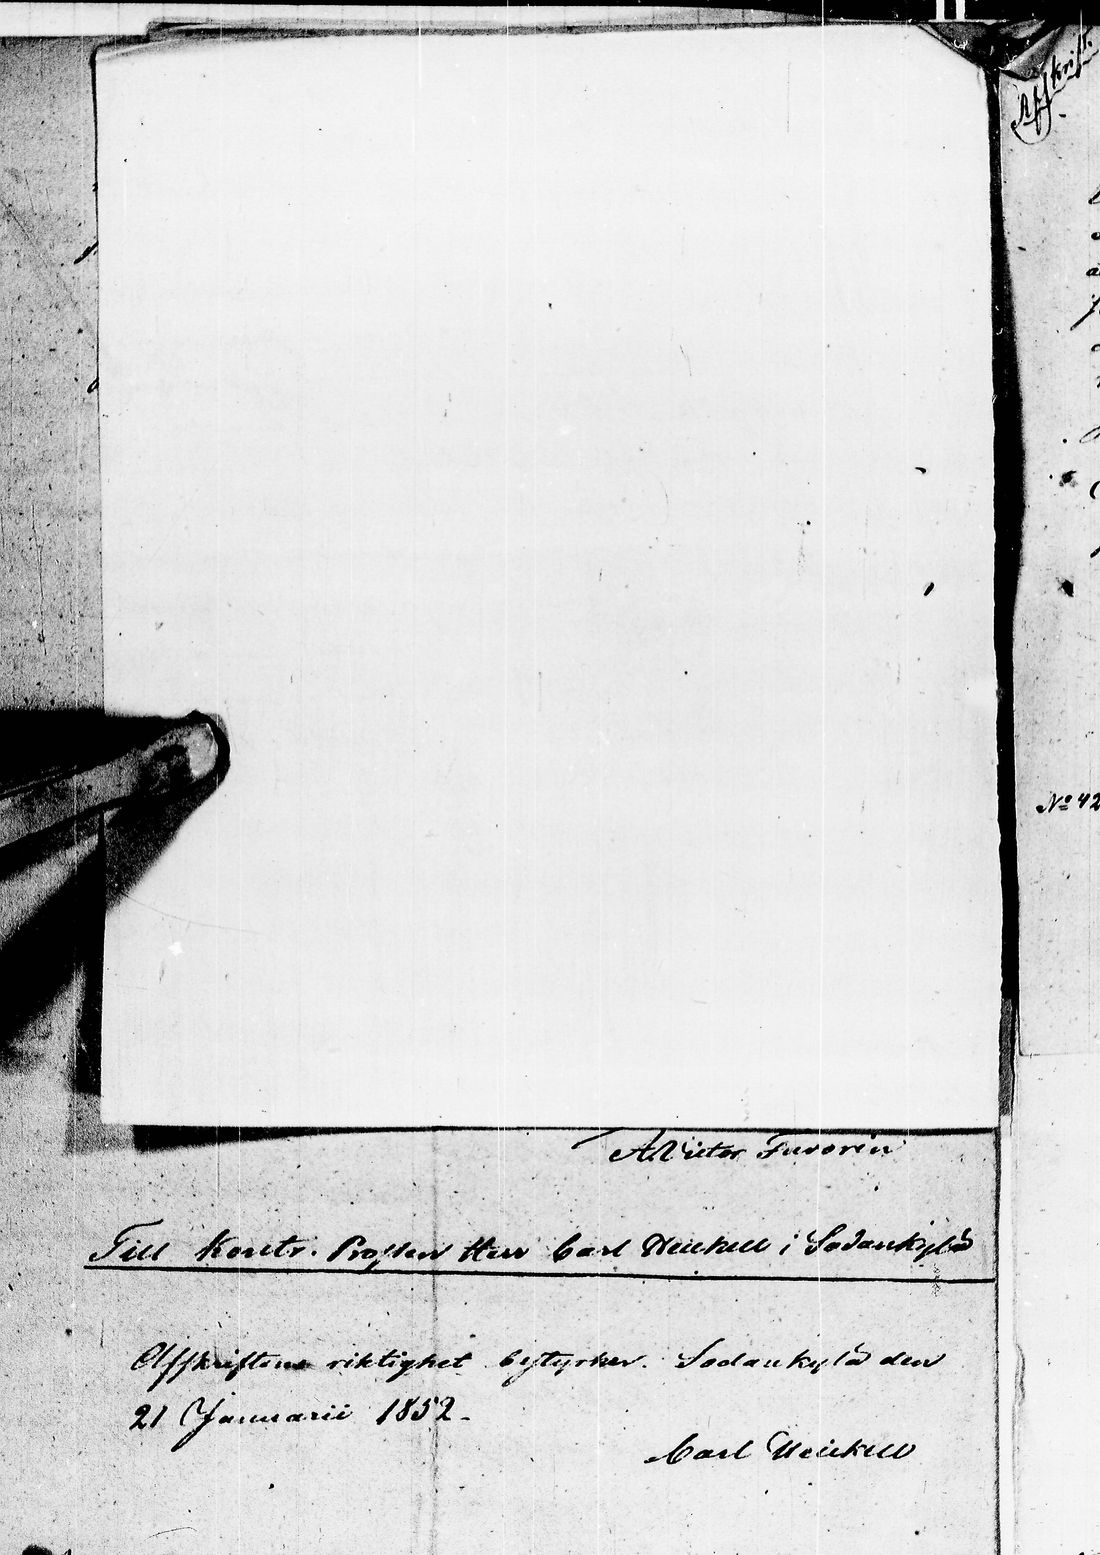 Afskrift.
No 42
A Victor Favorin
Till Kontr. Prosten Herr Carl Heickell i Sodankylä
Afskriftens riktighet bestyrker. Sodankylä den
21 Januarii 1852.
Carl Heickell